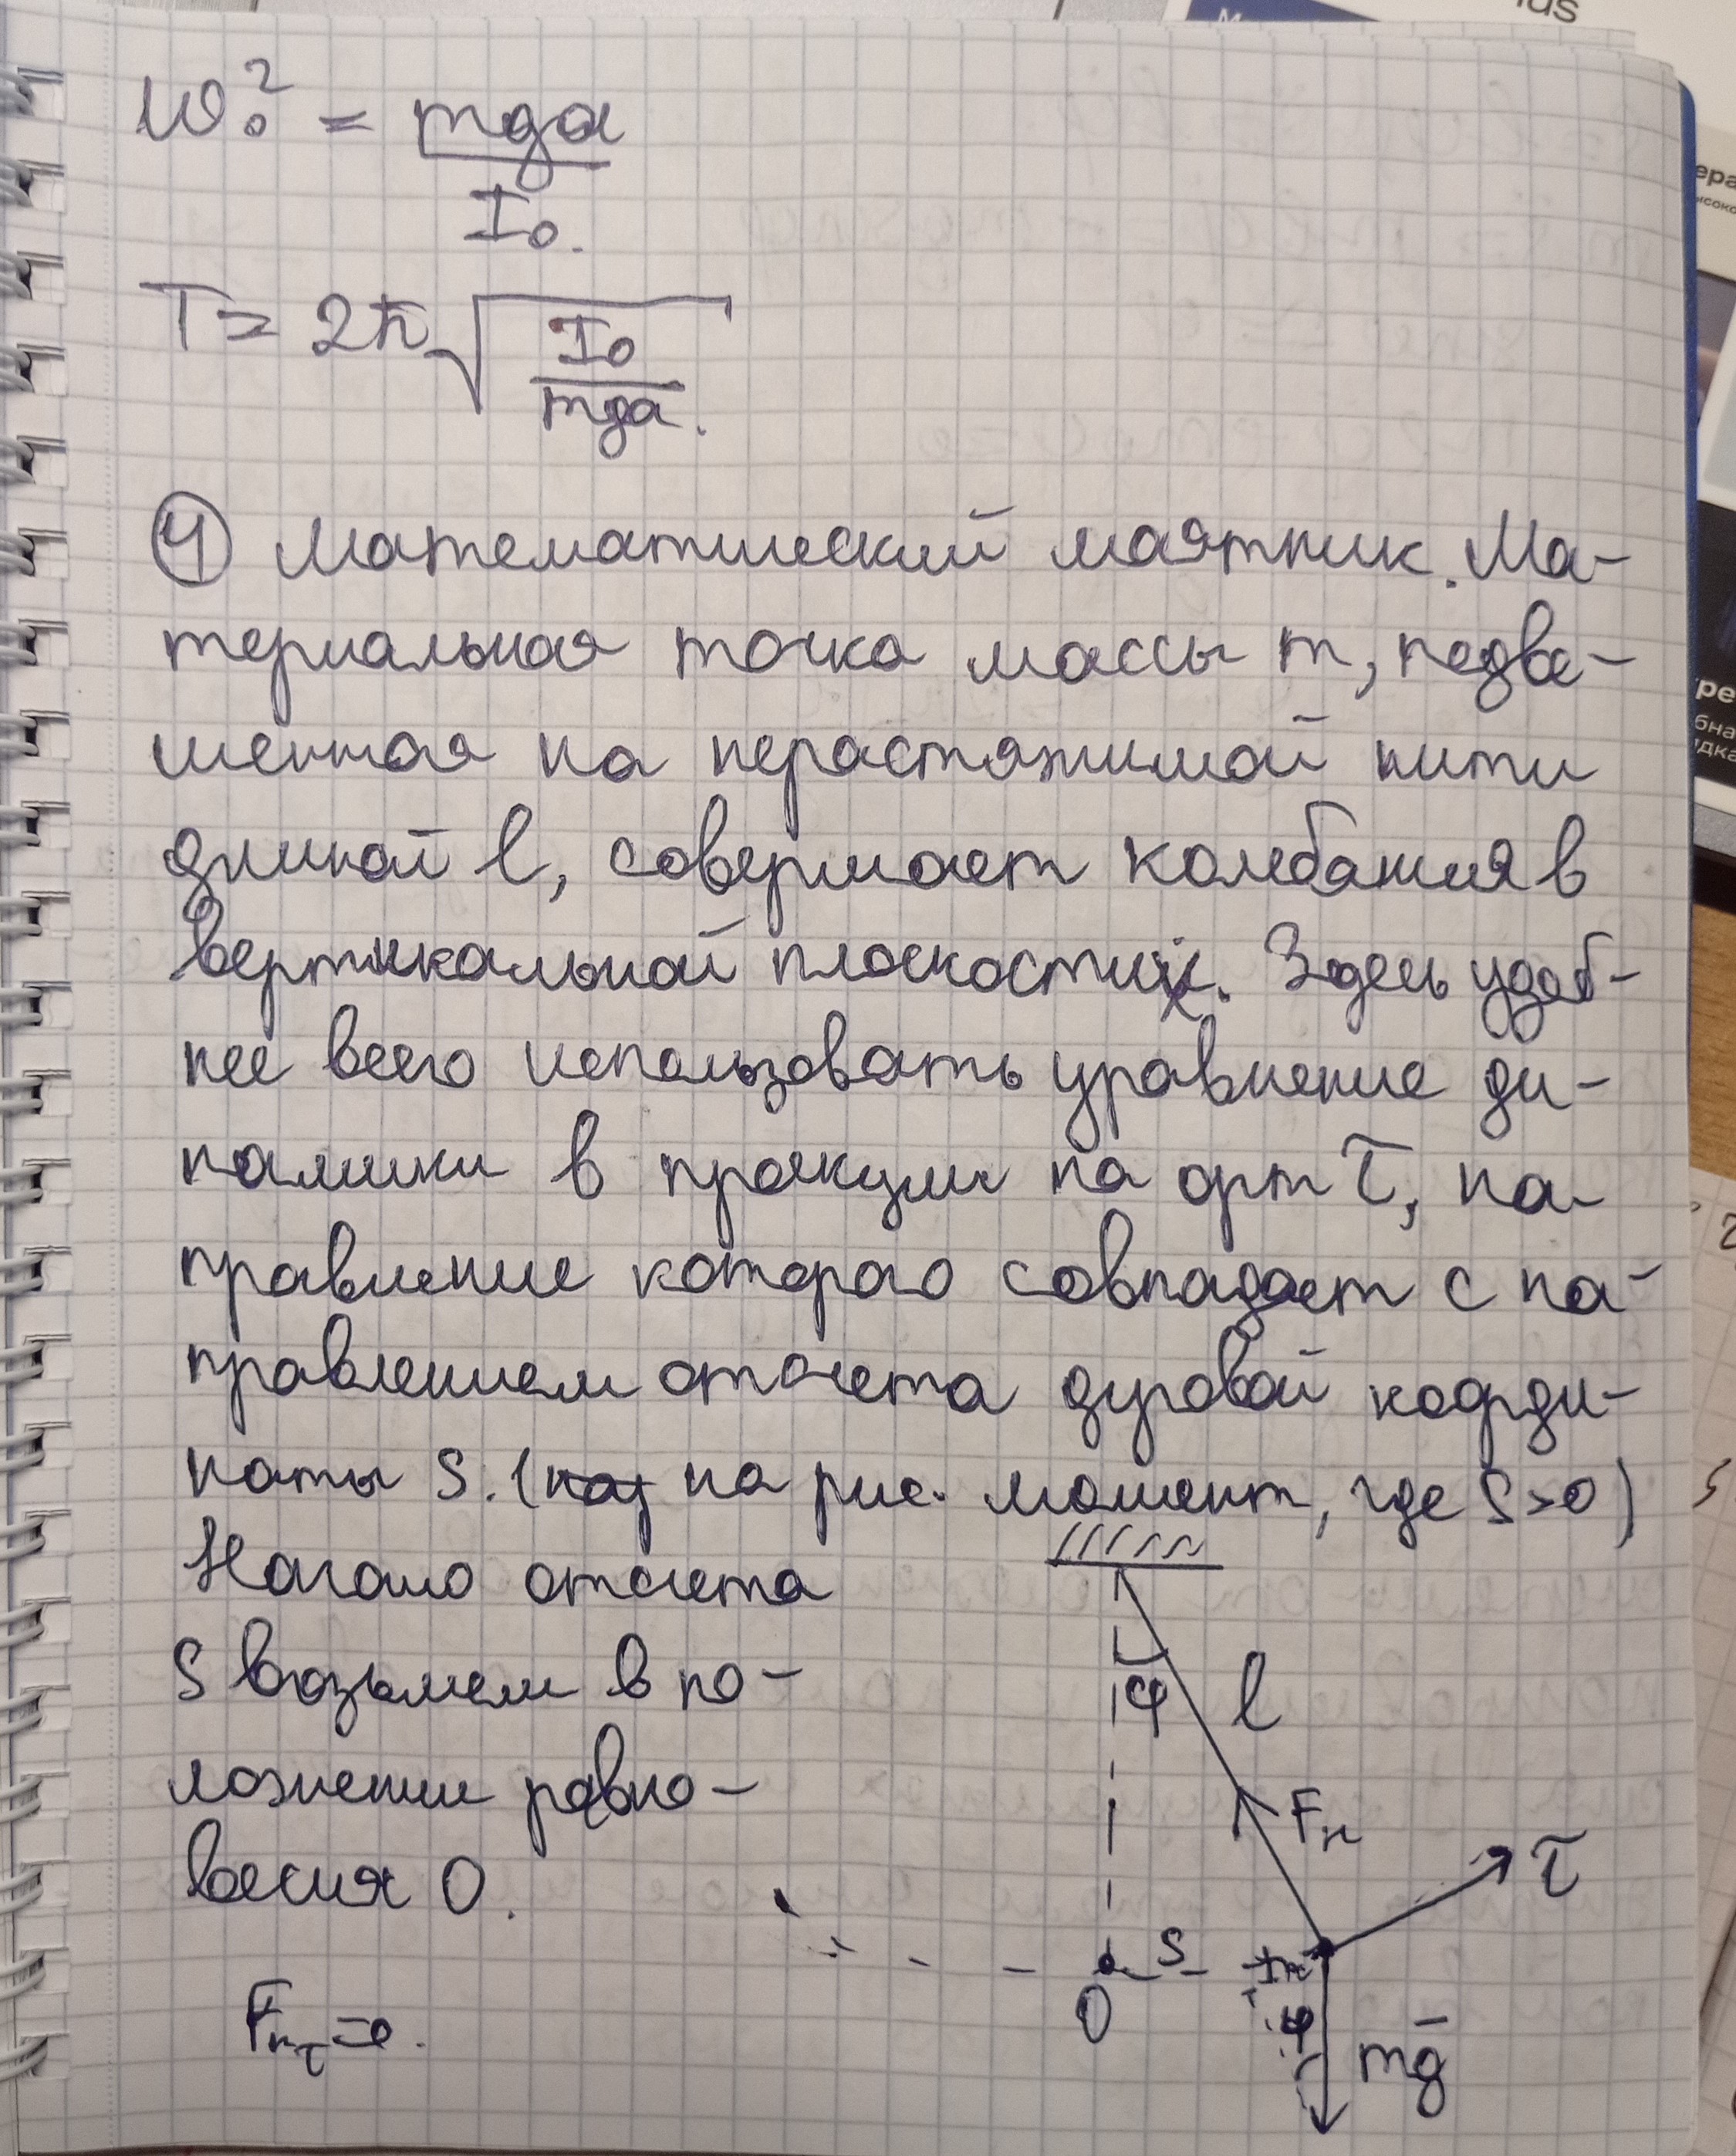 ω₀² = mga
I₀.
T = 2π √ I₀
mga.
④ Математический маятник. Ма-
териальная точка массы m, подве-
шенная на нерастяжимой нити
длиной l, совершает колебания в
вертикальной плоскости. Здесь удоб-
нее всего использовать уравнение ди-
намики в проекции на орт τ, на-
правление которого совпадает с на-
правлением отсчета дуговой коорди-
наты S. (на рис. момент, где S>0)
Начало отсчета
S возьмем в по-
ложении равно-
весия O.
φ l
Fн
τ
S
O
φ
mg̅
Fнτ=0.